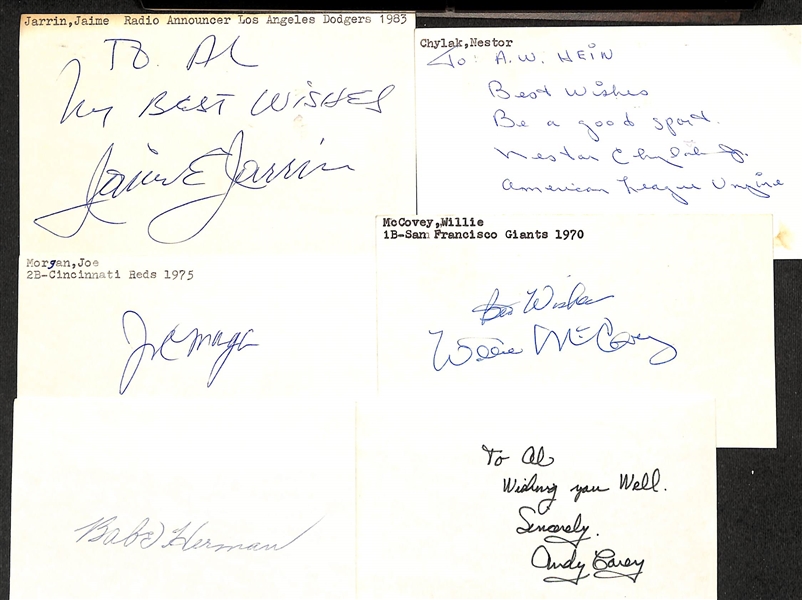 Jarrin,Jaime Radio Announcer Los Angeles Dodgers 1983
To AL
My BEST WISHES
Jaime Jarrin
Chylak,Nestor
To: A.W. HEIN
Best Wishes
Be a good sport.
Nestor Chylak Jr.
American League Umpire
Morgan,Joe
2B-Cincinnati Reds 1975
Joe Morgan
McCovey,Willie
1B-San Francisco Giants 1970
Best Wishes
Willie McCovey
Babe Herman
To Al
Wishing you Well.
Sincerely.
Andy Carey